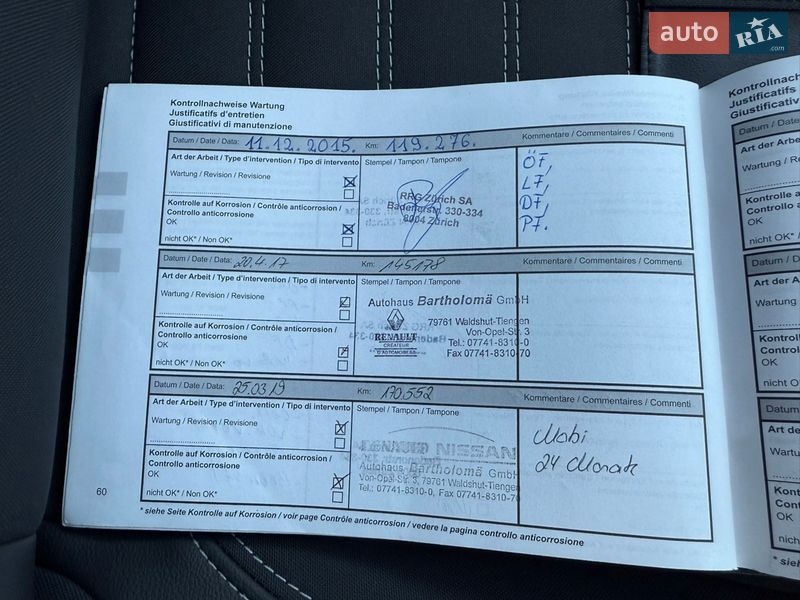 auto RIA .com
Kontrollnachweise Wartung
Justificatifs d'entretien
Giustificativi di manutenzione
Datum / Date / Data: 11.12.2015. Km: 119.276. Kommentare / Commentaires / Commenti
Art der Arbeit / Type d'intervention / Tipo di intervento
Stempel / Tampon / Tampone
Wartung / Revision / Revisione
Kontrolle auf Korrosion / Contrôle anticorrosion /
Controllo anticorrosione
OK
nicht OK* / Non OK*
RRG Zürich SA
Badenerstr. 330-334
8004 Zürich
ÖF,
LF,
DF,
PF.
Datum / Date / Data: 20.4.17 Km: 145178 Kommentare / Commentaires / Commenti
Art der Arbeit / Type d'intervention / Tipo di intervento
Stempel / Tampon / Tampone
Wartung / Revision / Revisione
Kontrolle auf Korrosion / Contrôle anticorrosion /
Controllo anticorrosione
OK
nicht OK* / Non OK*
Autohaus Bartholomä GmbH
RENAULT
CRÉATEUR
D'AUTOMOBILES
79761 Waldshut-Tiengen
Von-Opel-Str. 3
Tel.: 07741-8310-0
Fax 07741-8310-70
Datum / Date / Data: 25.03.19 Km: 170.552 Kommentare / Commentaires / Commenti
Art der Arbeit / Type d'intervention / Tipo di intervento
Stempel / Tampon / Tampone
Wartung / Revision / Revisione
Kontrolle auf Korrosion / Contrôle anticorrosion /
Controllo anticorrosione
OK
nicht OK* / Non OK*
RENAULT NISSAN
Autohaus Bartholomä GmbH
Von-Opel-Str. 3, 79761 Waldshut-Tiengen
Tel.: 07741-8310-0, Fax 07741-8310-70
Mobi
24 Monate
60
* siehe Seite Kontrolle auf Korrosion / voir page Contrôle anticorrosion / vedere la pagina controllo anticorrosione
Kontrollnachw
Justificatifs d
Giustificativi
Datum / Date
Art der Arbei
Wartung / Re
Kontrolle a
Controllo a
OK
nicht OK*
Datum /
Art der A
Wartung
Kontroll
Controll
OK
nicht OK
Datum
Art der
Wartu
Kont
Cont
OK
nich
* sieh